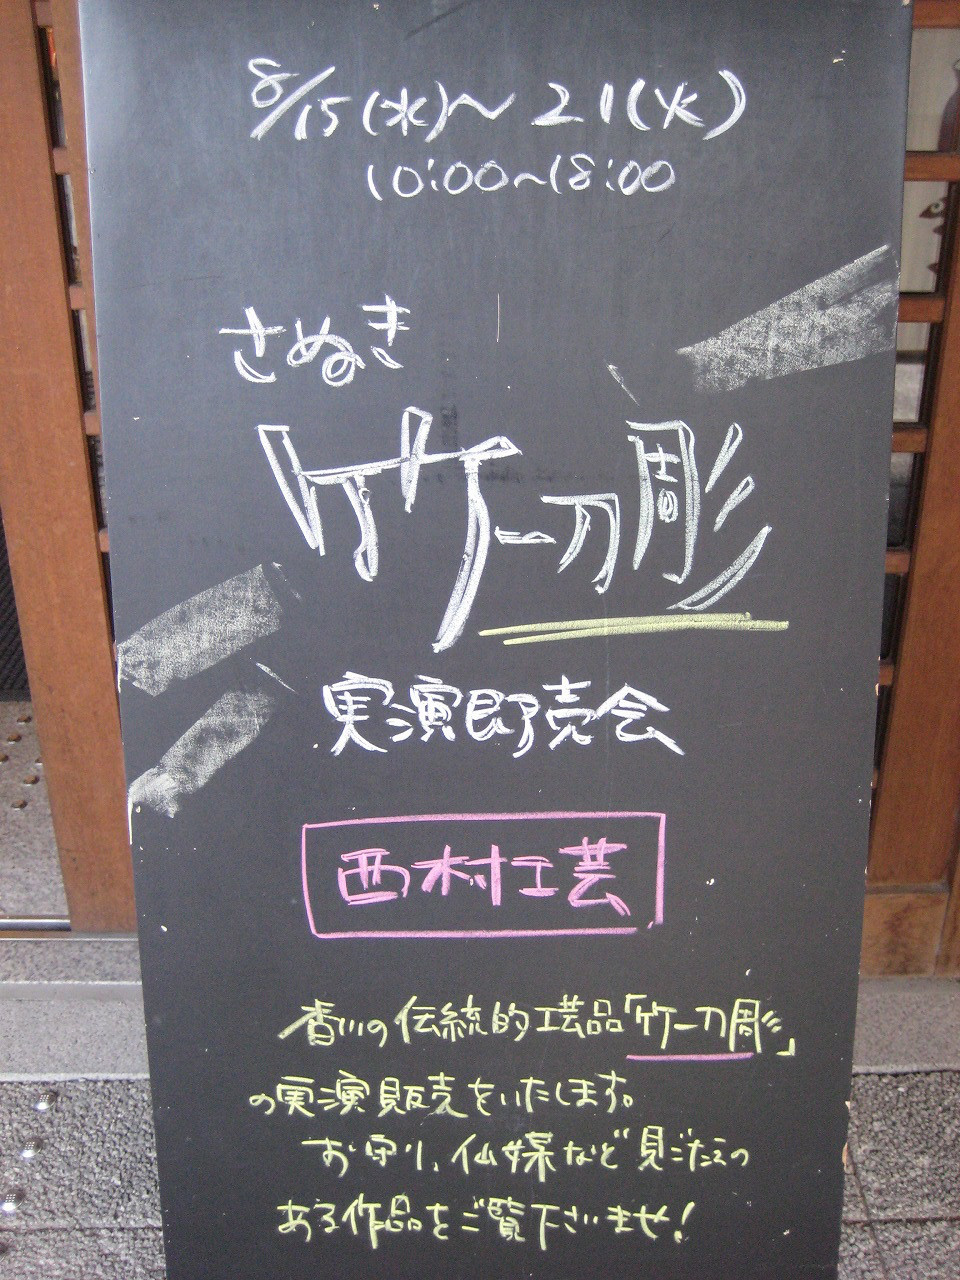 8/15(水)～21(火)
10:00～18:00
さぬき
竹一刀彫
実演即売会
西村工芸
香川の伝統的工芸品「竹一刀彫」
の実演販売をいたします。
お守り、仙媒など見ごたえの
ある作品をご覧下さいませ!